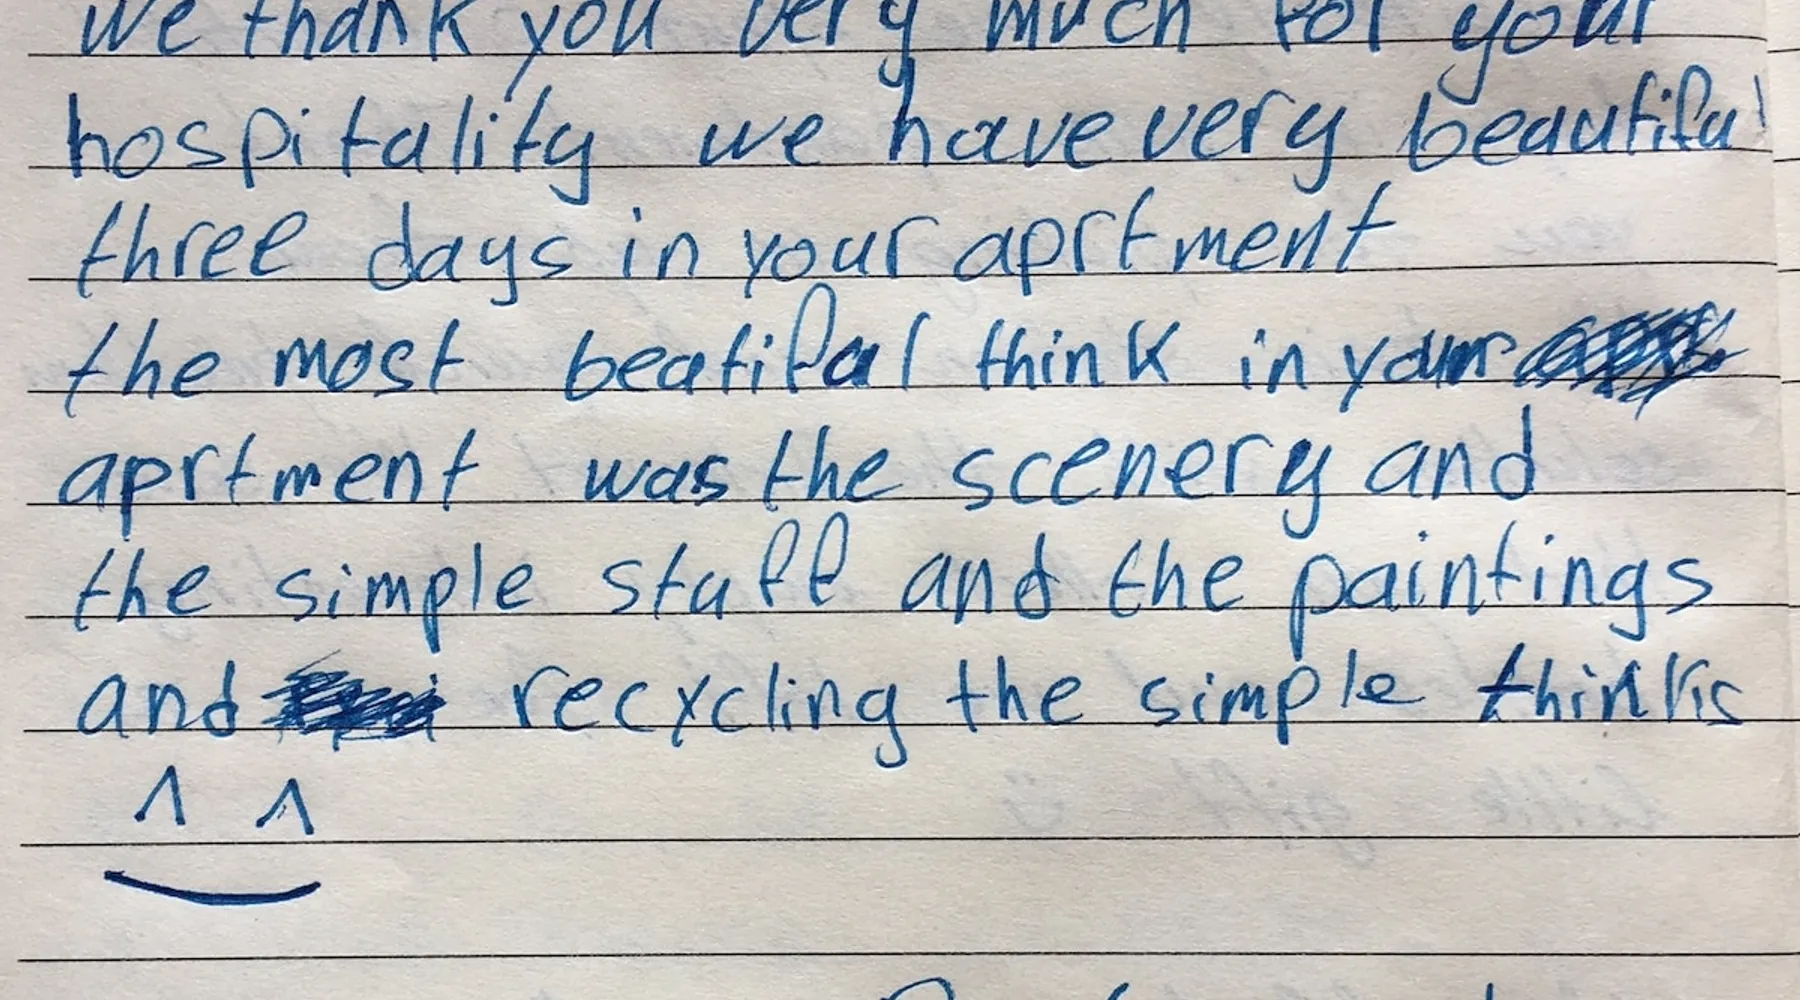 we thank you very much for your
hospitality we have very beautiful
three days in your aprtment
the most beatifal think in your
aprtment was the scenery and
the simple stuff and the paintings
and recycling the simple thinks